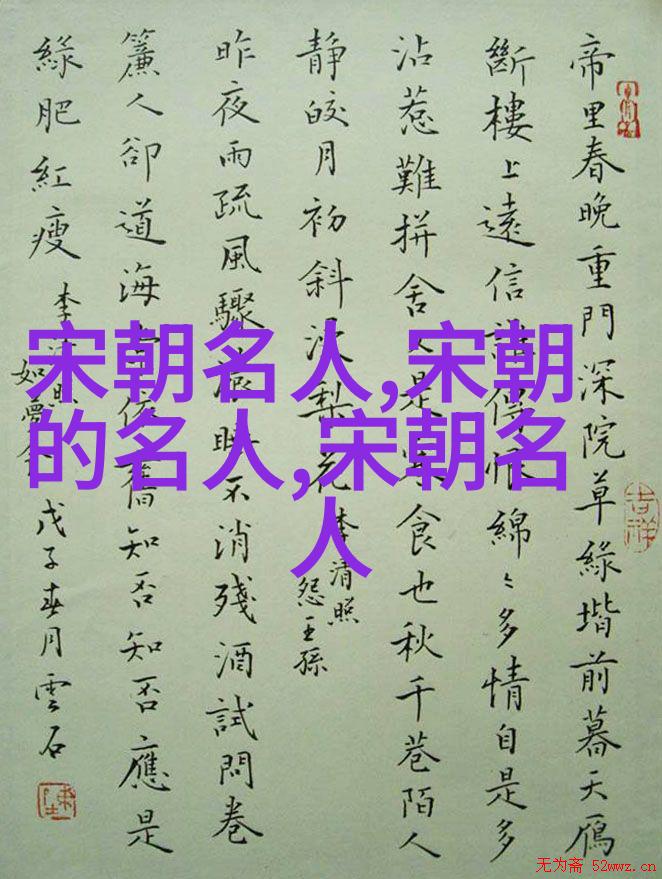 宋朝名人,宋朝
的名人,宋朝名
人
帝里春晚重門深院草緑堦前暮天鴈
斷樓上遠信誰傳恨綿〻多情自是多
沾惹難拼舍又是食也秋千巷陌人
静皎月初斜浸梨花
李清照
怨王孫
昨夜雨疏風驟濃睡不消殘酒試問卷
簾人卻道海棠依舊知否知否應是
緑肥紅瘦
李清照
如夢令
戊子春月雲石
吉祥
无为斋 52wwz.cn